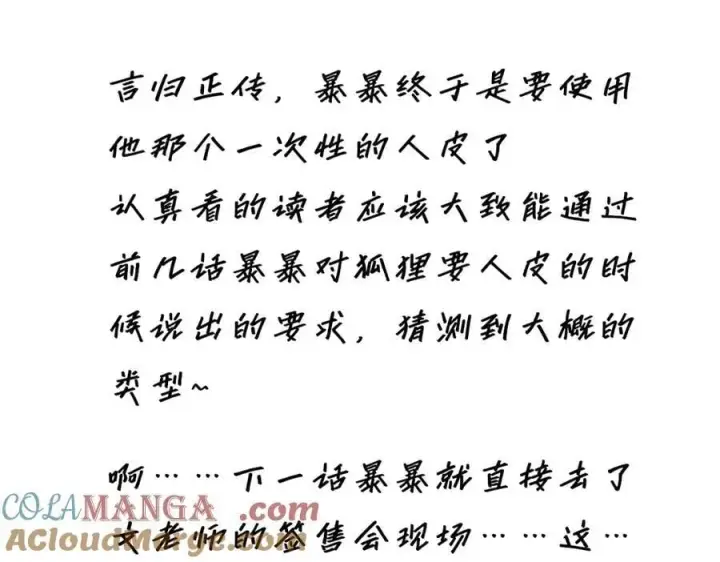 言归正传，暴暴终于是要使用
他那个一次性的人皮了
认真看的读者应该大致能通过
前几话暴暴对狐狸要人皮的时
候说出的要求，猜测到大概的
类型~
啊……下一话暴暴就直接去了
COLAMANGA.com
文老师的签售会现场……这…
ACloudMerge.com